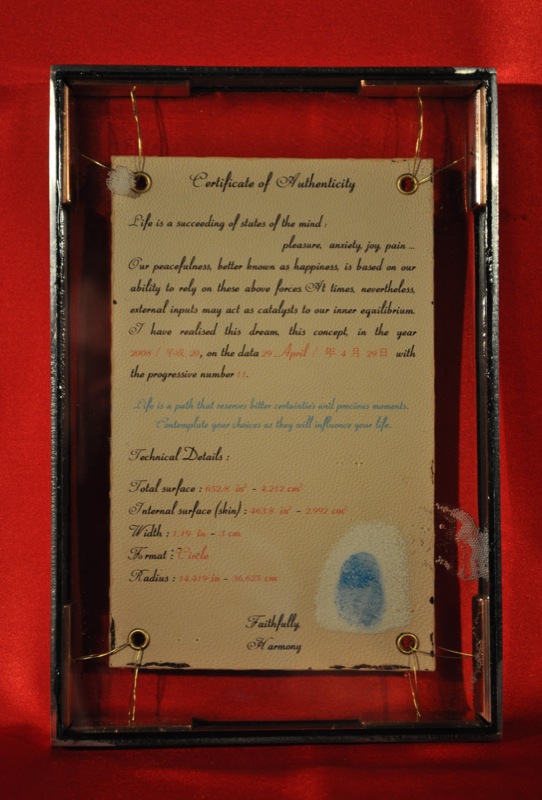 Certificate of Authenticity
Life is a succeeding of states of the mind :
pleasure, anxiety, joy, pain ...
Our peacefulness, better known as happiness, is based on our
ability to rely on these above forces. At times, nevertheless,
external inputs may act as catalysts to our inner equilibrium.
I have realised this dream, this concept, in the year
2008 / 平成 20, on the data 29 . April / 年 4 月 29 日 with
the progressive number 11.
Life is a path that reserves bitter certainties until precious moments.
Contemplate your choices as they will influence your life.
Technical Details :
Total surface : 652.8 in² - 4.212 cm²
Internal surface (skin) : 463.8 in² - 2.992 cm²
Width : 1.19 in - 3 cm
Format : Circle
Radius : 14.419 in - 36,625 cm
Faithfully
Harmony